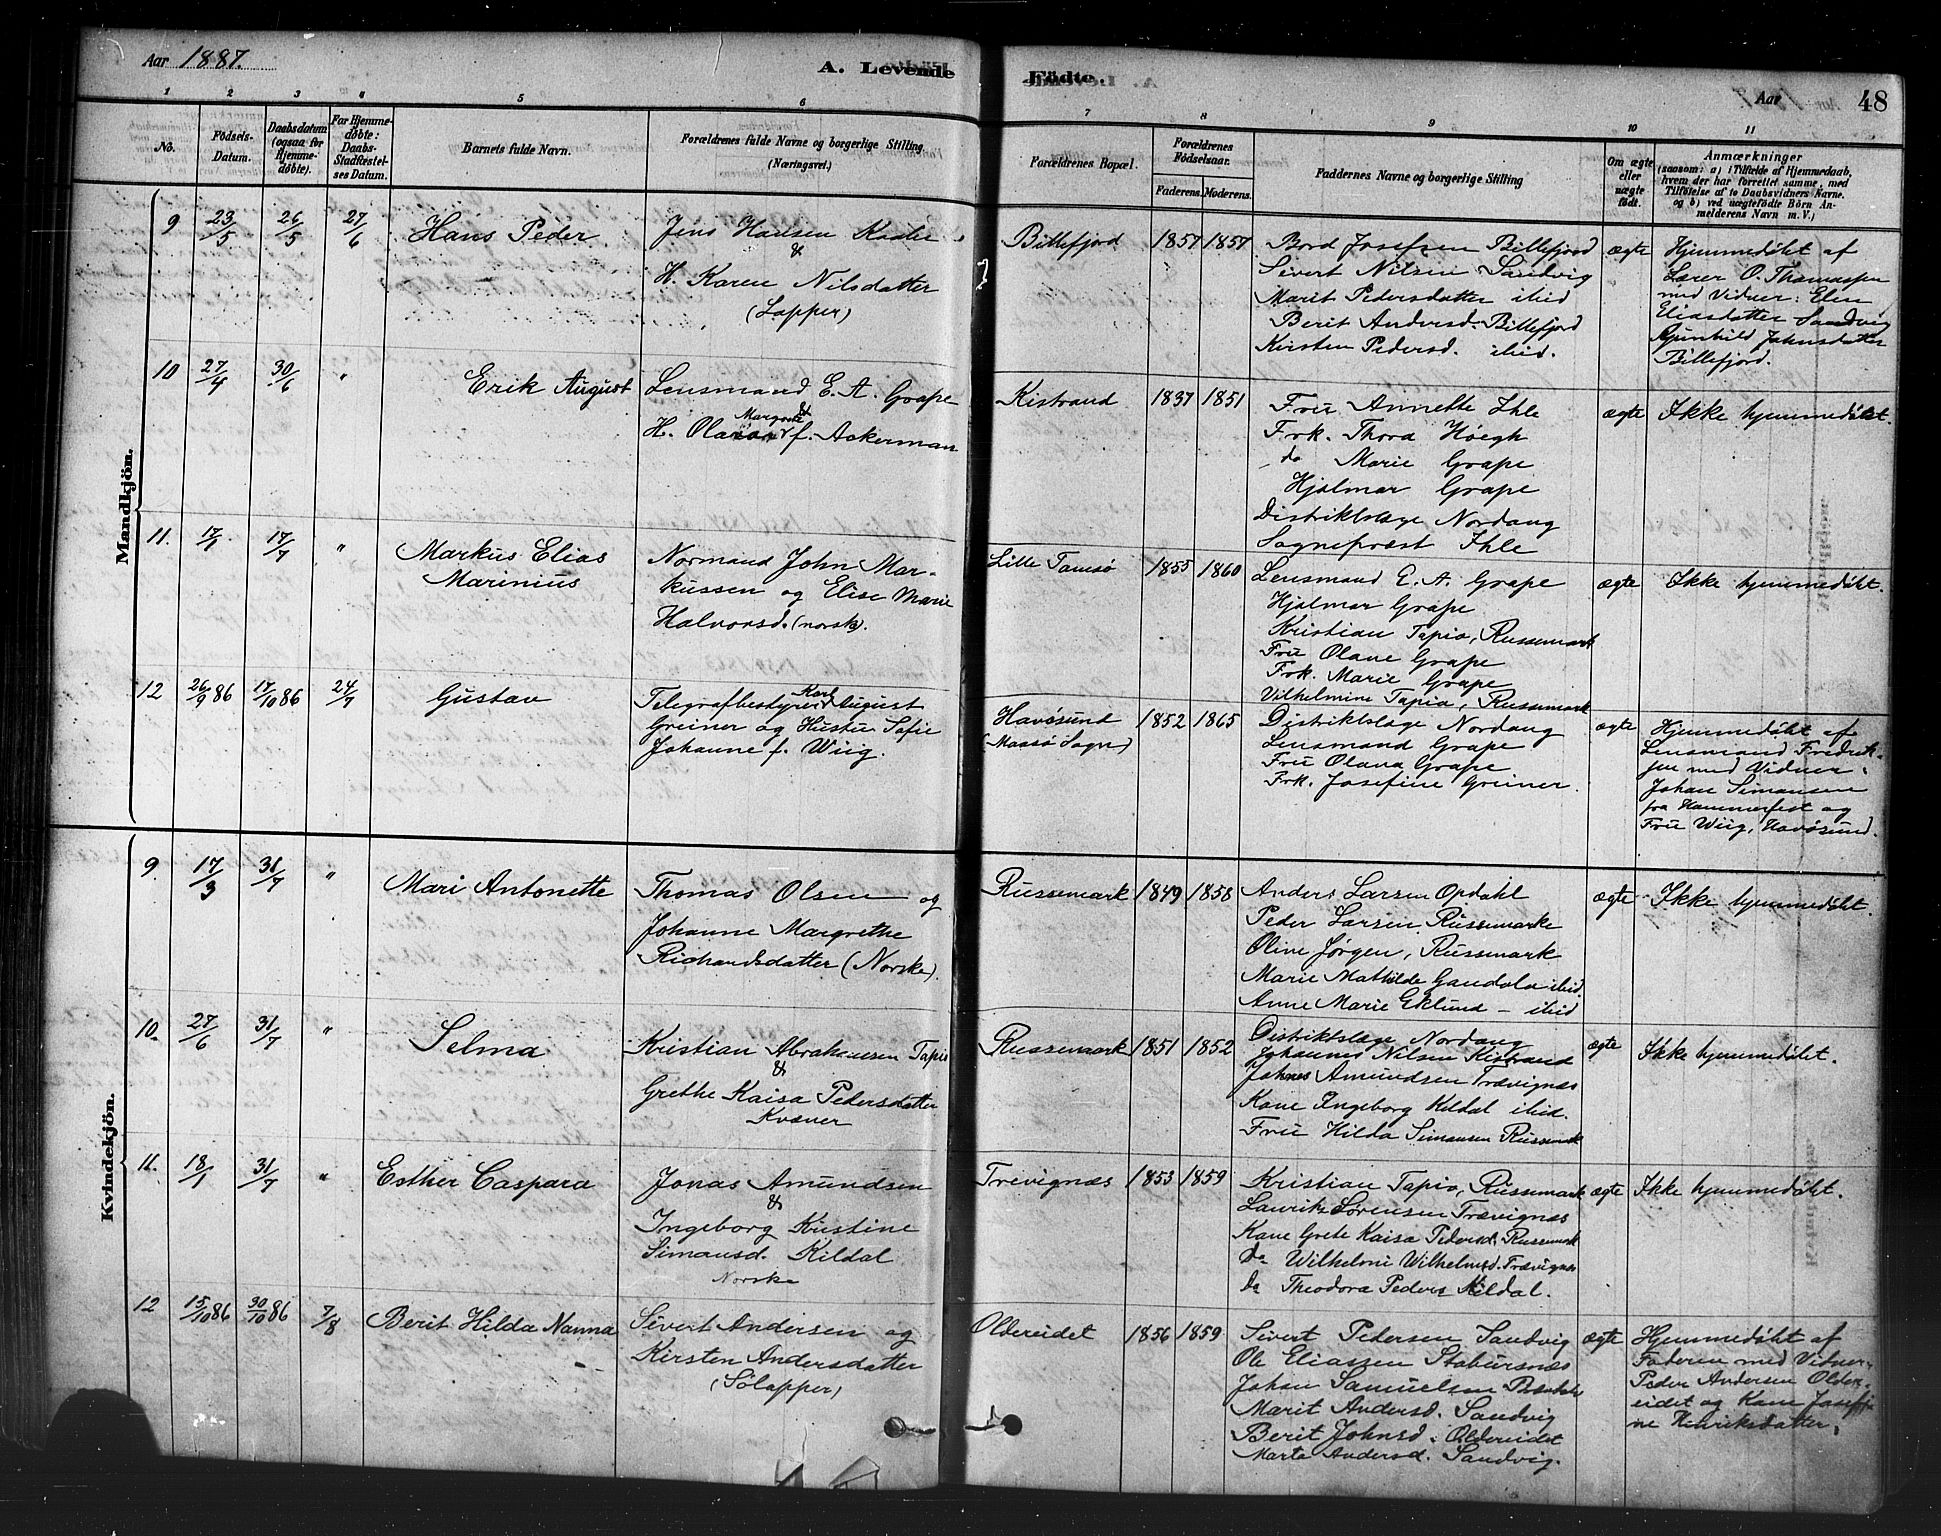 Aar 1887.
A. Levende
Födte.
Aar
48
1 2 3 4 5 6 7 8 9 10 11
No.
Födsels-
Datum.
Daabsdatum
(ogsaa for
Hjemme-
døbte).
For Hjemme-
døbte:
Daabs-
Stadfæstel-
ses Datum.
Barnets fulde Navn.
Forældrenes fulde Navne og borgerlige Stilling
(Næringsvei.)
Forældrenes Bopæl.
Forældrenes
Födselsaar.
Faderens.
Moderens.
Faddernes Navne og borgerlige Stilling
Om ægte
eller
uægte
født.
Anmærkninger
(saasom: a) i Tilfælde af Hjemmedaab,
hvem der har forrettet samme, med
Tilføielse af to Daabsvidners Navne.
og b) ved uægtefødte Børn An-
melderens Navn m. V.)
Mandkjön.
9 23/5 26/5 27/6 Hans Peder
Jens Hansen
&
H. Karen Nilsdatter
(Lapper)
Billefjord 1857 1857
Bord Josefsen Billefjord
Sivert Nilsen Sandvig
Marit Pedersdatter ibid
Berit Andersd. Billefjord
Kirsten Pedersd. ibid.
ægte
Hjemmedøbt af
Lærer O. Thomassen
med Vidner: Elen
Eliasdatter Sandvig
Gunhild Johnsdatter
Billefjord.
10 27/4 30/6 " Erik August
Lensmand E. A. Grape
&
H. Olava Margrete f. Ackerman
Kistrand 1837 1851
Fru Annette Ihle
Frk. Thora Høegh
do Marie Grape
Hjalmar Grape
Distriktslæge Nordang
Sognepræst Ihle
ægte
Ikke hjemmedøbt.
11. 17/1 17/7 " Markus Elias
Marinius
Normand John Mar-
kussen og Elise Marie
Halvorsd. (norsk).
Lille Tamsø 1855 1860
Lensmand E. A. Grape
Hjalmar Grape
Kristian Tapio, Russemark
Fru Olane Grape
Frk. Marie Grape
Vilhelmine Tapio, Russemark
ægte
Ikke hjemmedøbt.
12 26/9 86 17/10 86 24/7 Gustav
Telegrafbestyrer Karl August
Greiner og Hustru Sofie
Johanne f. Wiig.
Havøsund
(Maasø Sogn)
1852 1865
Distriktslæge Nordang
Lensmand Grape
Fru Olava Grape
Frk. Josefine Greiner.
ægte
Hjemmedøbt af
Lensmand Fredrik-
sen med Vidner,
Johan Simonsen
fra Hammerfest og
Fru Wiig, Havøsund.
Kvindekjön.
9. 17/3 31/7 " Mari Antonette
Thomas Olsen og
Johanne Margrethe
Richardsdatter (Norske).
Russemark 1849 1858
Anders Larsen Opdahl
Peder Larsen Russemark
Oline Jørgen, Russemark
Marie Mathilde Gaudala ibid.
Anne Marie Eklund - ibid
ægte
Ikke hjemmedøbt.
10. 27/6 31/7 " Selma
Kristian Abrahamsen Tapio
&
Grethe Kaisa Pedersdatter
Kvæner
Russemark 1851 1852
Distriktslæge Nordang
Johannes Nilsen Kistrand
Johnes Amundsen Trævignæs
Kone Ingeborg Kildal ibid.
Fru Hilda Simonsen Russemark
ægte
Ikke hjemmedøbt.
11. 18/1 31/7 " Esther Caspara
Jonas Amundsen
&
Ingeborg Kristine
Simonsd. Kildal
Norske
Trevignæs 1853 1859
Kristian Tapio, Russemark
Laurits Sørensen Trævignæs
Kone Grete Kaisa Pedersd. Russemark
do Wilhelmi Wilhelmsd. Trævignæs
do Theodora Peders Kildal.
ægte
Ikke hjemmedøbt.
12 15/10 86 30/10 86 7/8 Berit Hilda Nanna
Sivert Andersen og
Kirsten Andersdatter
(Sölapper)
Oldereidet 1856 1859
Sivert Pedersen Sandvig
Ole Eliassen Stabursnæs
Johan Samuelsen
Marit Andersd. Sandvig
Berit Johnsd. Oldereidet
Marta Andersd. Sandvig.
ægte
Hjemmedøbt af
Faderen med Vidner
Peder Andersen Older-
eidet og Kone Josefi-
ne Henriksdatter.